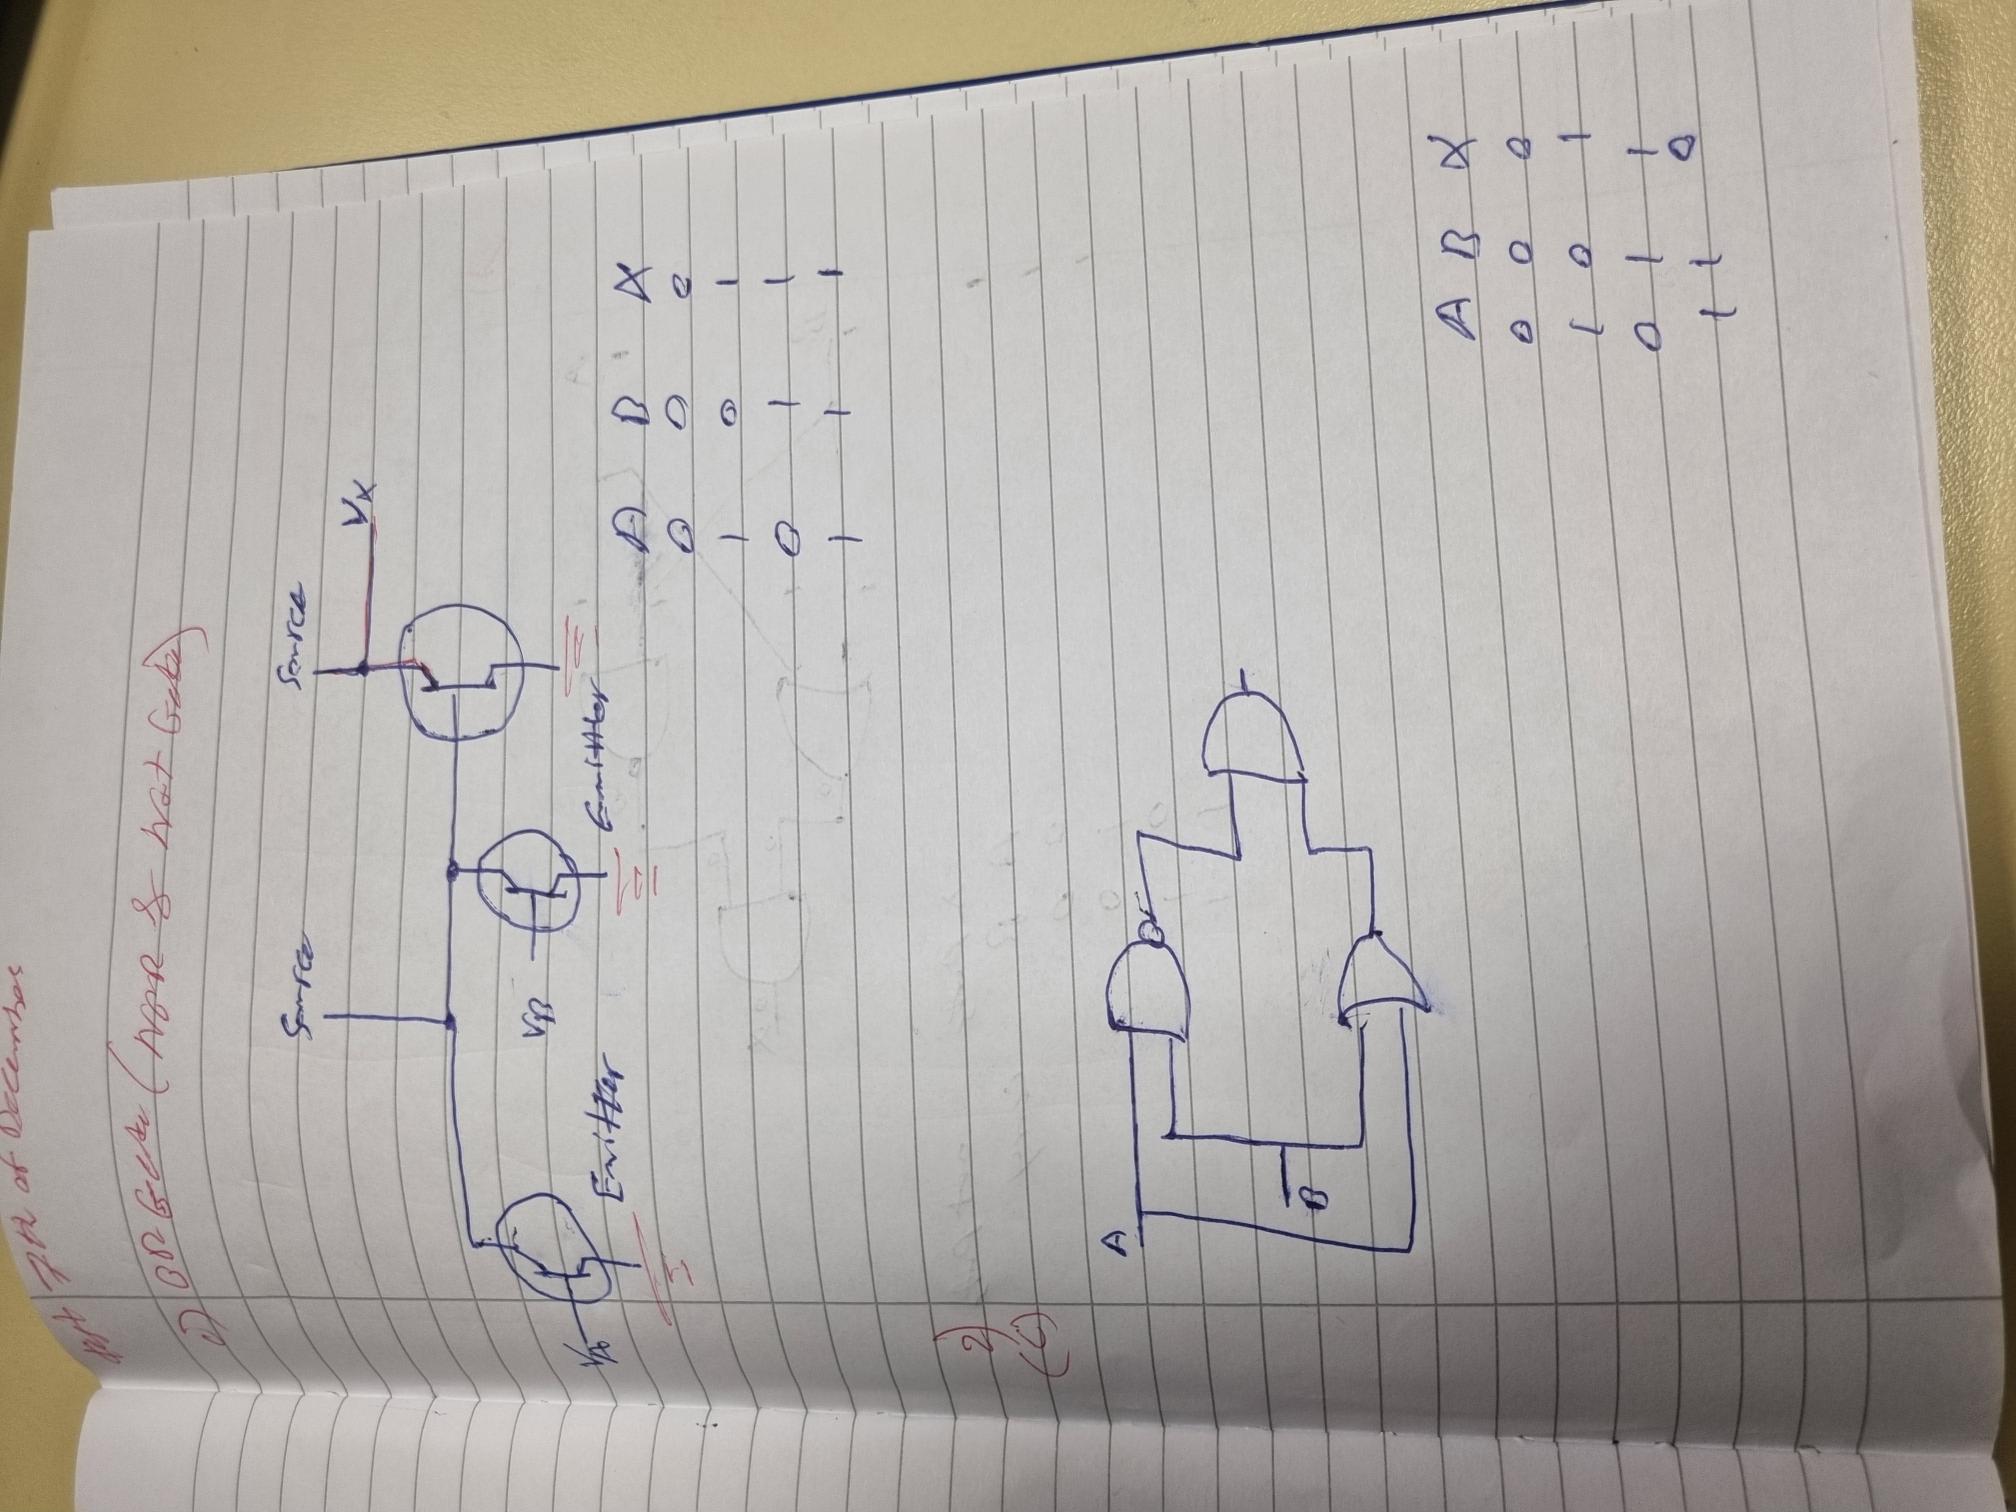 7th of December
1) OR Gate (NOR & Not Gate)
Source Source
Vx
VA Emitter VB Emitter
A B X
0 0 0
1 0 1
0 1 1
1 1 1
2)
A
B
A B X
0 0 0
1 0 1
0 1 1
1 1 0